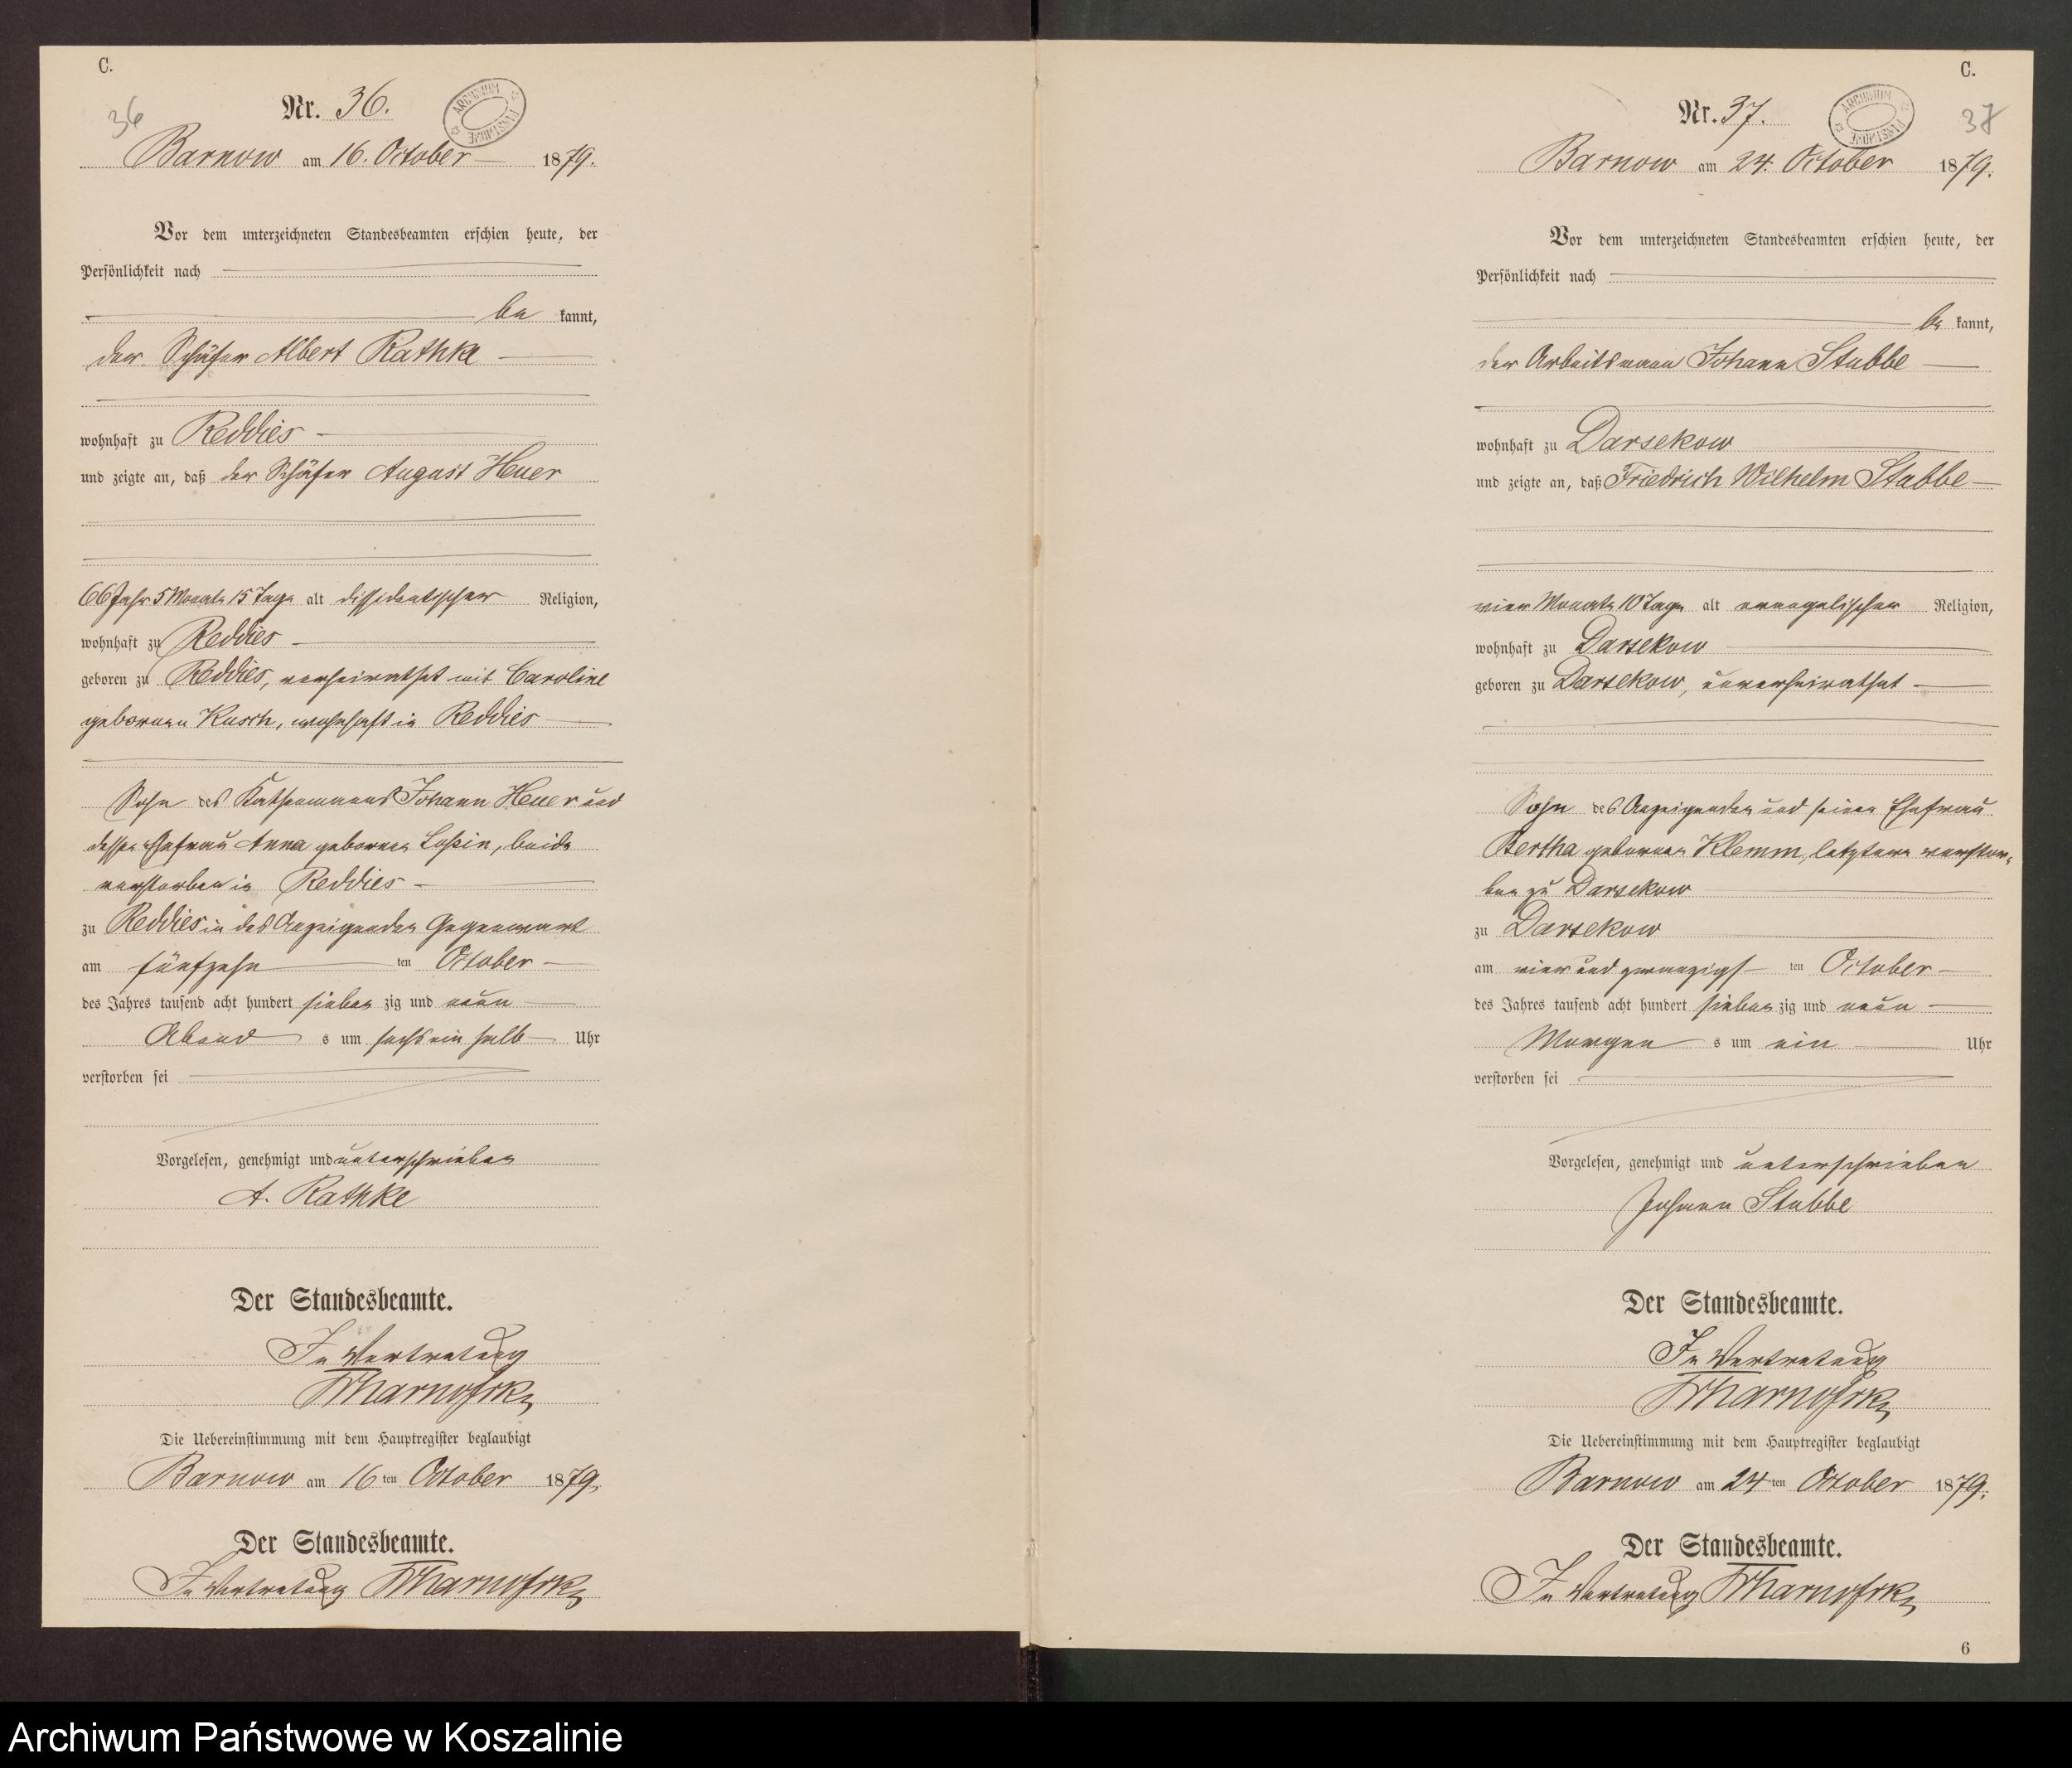 C.
36
Nr. 36.
ARCHIWUM PAŃSTWOWE
Barnow am 16. October 1879.
Vor dem unterzeichneten Standesbeamten erschien heute, der
Persönlichkeit nach
be kannt,
der Schäfer Albert Rathke
wohnhaft zu Reddies
und zeigte an, daß der Schäfer August Heuer
66 Jahr 5 Monate 15 Tage alt dissidentischer Religion,
wohnhaft zu Reddies
geboren zu Reddies, verheirathet mit Caroline
geborenen Kusch, wohnhaft in Reddies
Sohn des Kathenmanns Johann Heuer und
dessen Ehefrau Anna geborenen Loßin, beide
verstorben in Reddies
zu Reddies in des Anzeigenden Gegenwart
am fünfzehn ten October
des Jahres tausend acht hundert sieben zig und neun
Abend s um sechs ein halb Uhr
verstorben sei
Vorgelesen, genehmigt und unterschrieben
A. Rathke
Der Standesbeamte.
In Vertretung
Die Uebereinstimmung mit dem Hauptregister beglaubigt
Barnow am 16 ten October 1879.
Der Standesbeamte.
In Vertretung
C.
37
Nr. 37.
ARCHIWUM PAŃSTWOWE
Barnow am 24. October 1879.
Vor dem unterzeichneten Standesbeamten erschien heute, der
Persönlichkeit nach
be kannt,
der Arbeitsmann Johann Stubbe
wohnhaft zu Darsekow
und zeigte an, daß Friedrich Wilhelm Stubbe
vier Monate 10 Tage alt evangelischer Religion,
wohnhaft zu Darsekow
geboren zu Darsekow, unverheirathet
Sohn des Anzeigenden und seiner Ehefrau
Bertha geborenen Klemm, letztere verstor-
ben zu Darsekow
zu Darsekow
am vier und zwanzigs ten October
des Jahres tausend acht hundert sieben zig und neun
Morgen s um ein Uhr
verstorben sei
Vorgelesen, genehmigt und unterschrieben
Johann Stubbe
Der Standesbeamte.
In Vertretung
Die Uebereinstimmung mit dem Hauptregister beglaubigt
Barnow am 24 ten October 1879.
Der Standesbeamte.
In Vertretung
6
Archiwum Państwowe w Koszalinie